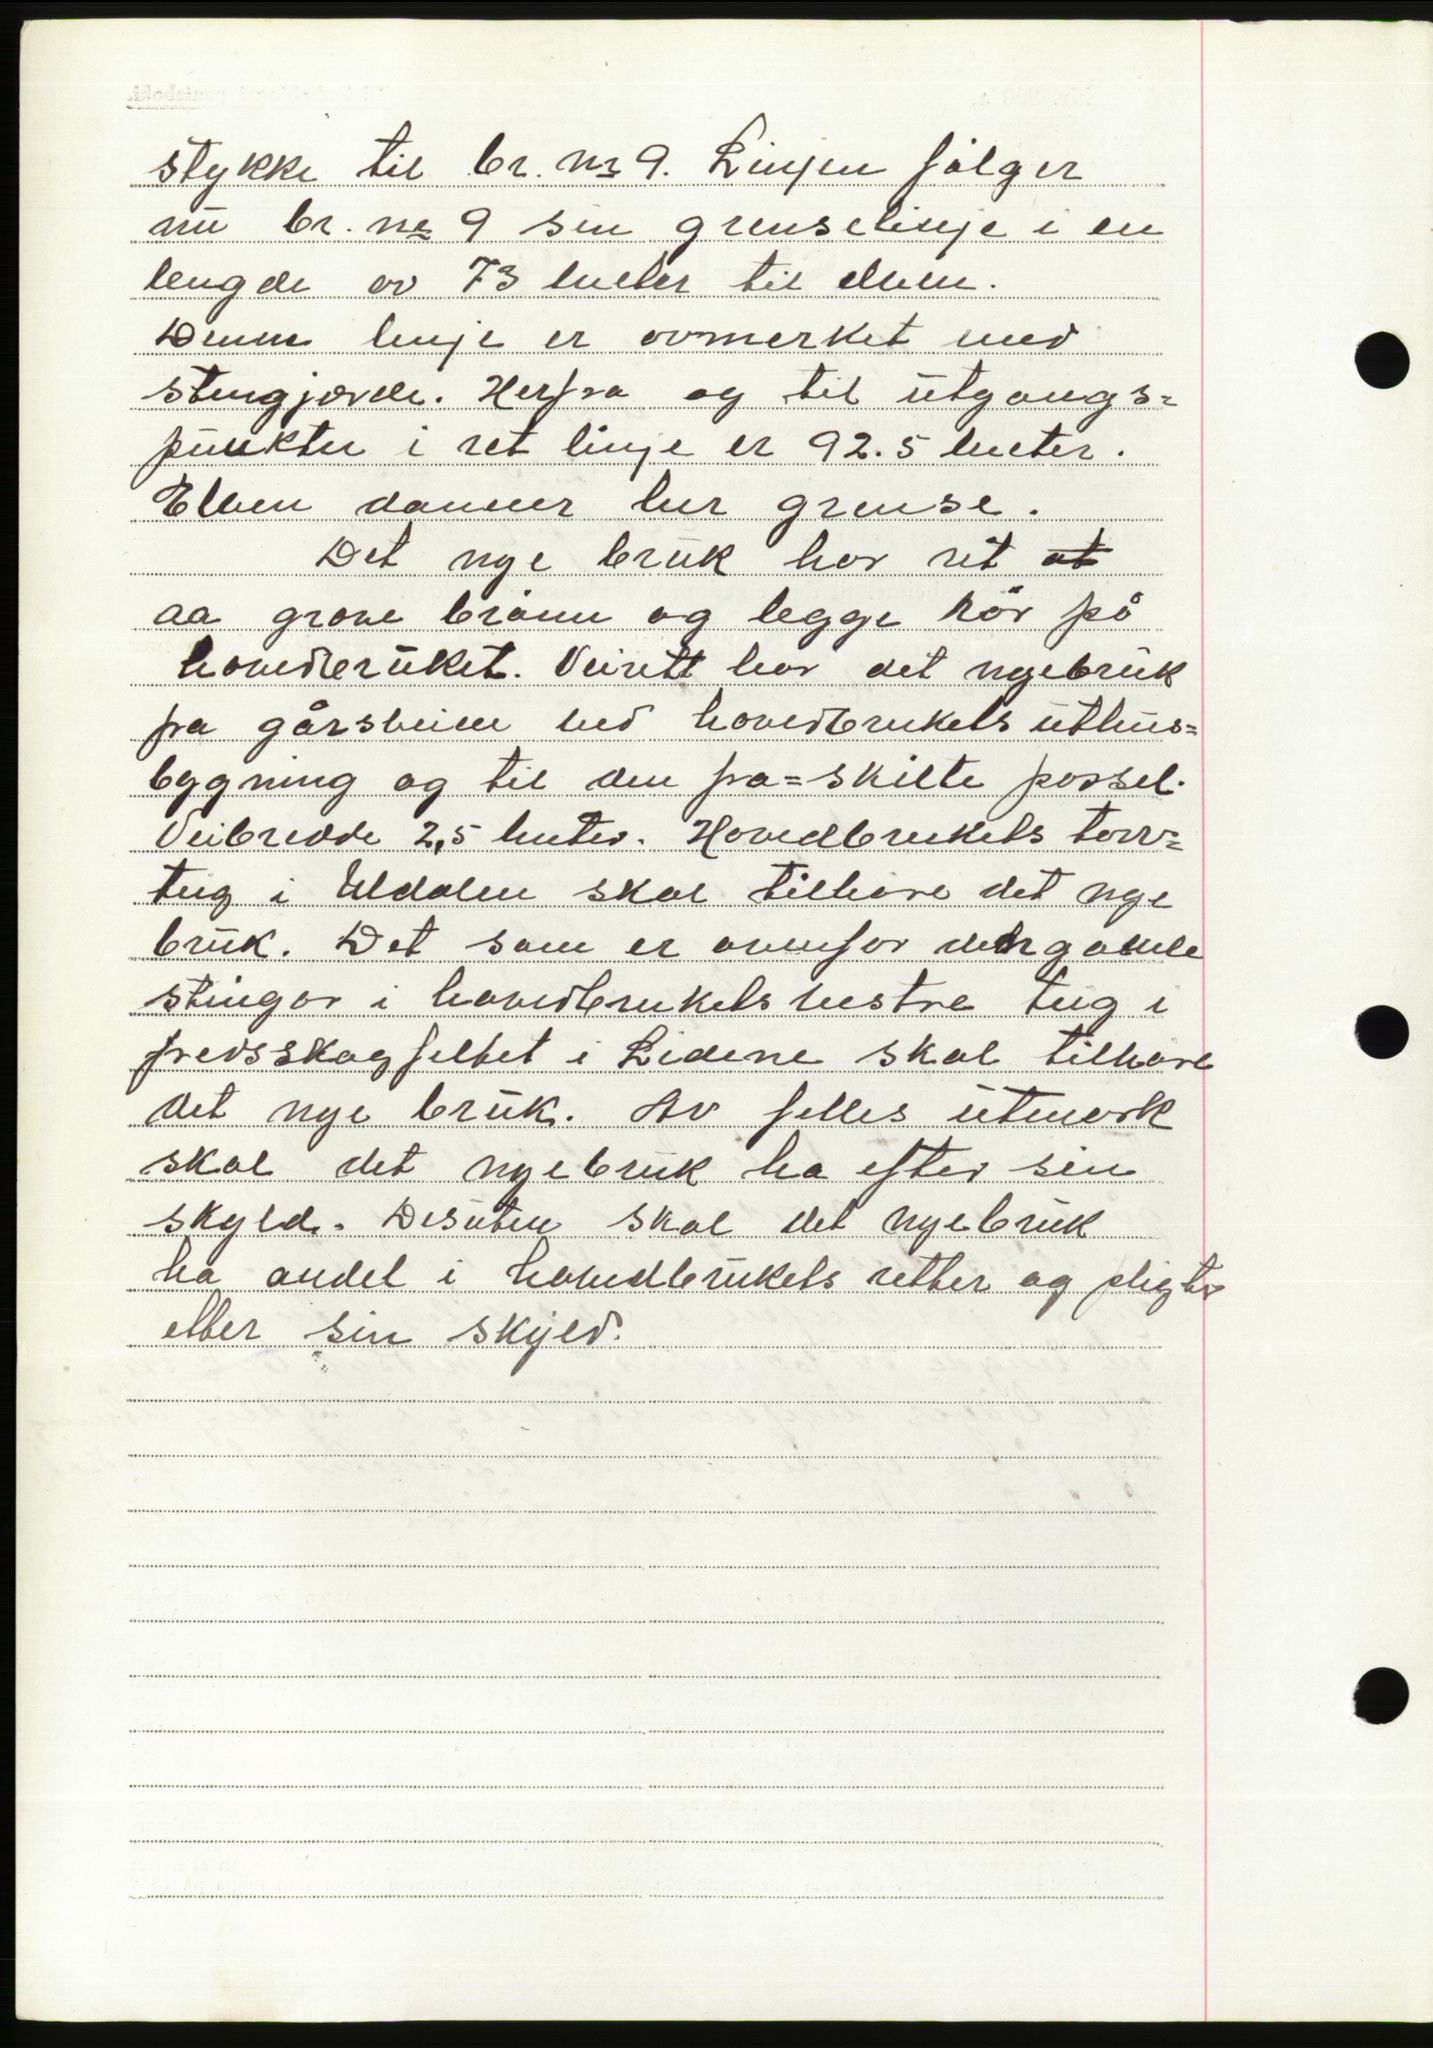 stykke til br. nr 9. Linjen fölger
nu br. nr 9 sin grenselinje i en
lengde av 73 meter til elven.
Denne linje er avmerket med
stengjerde. Herfra og til utgangs=
punkte i ret linje er 92.5 meter.
Elven danner her grense.
Det nye bruk har ret at
aa grave brönn og legge rör på
hovedbruket. Veirett har det nyebruk
fra gårsveien ved hovedbrukets uthus=
bygning og til den fra=skilte parsel.
Veibredde 2,5 meter. Hovedbrukets torv=
teig i Uldalen skal tilhøre det nye
bruk. Det som er ovenfor den gamle
stingar i hovedbrukets vestre teig i
fredsskogfeltet i Lidene skal tilhøre
det nye bruk. Av felles utmark
skal det nyebruk ha efter sin
skyld. Desuten skal det nyebruk
ha andel i hovedbrukets retter og pligter
etter sin skyld.